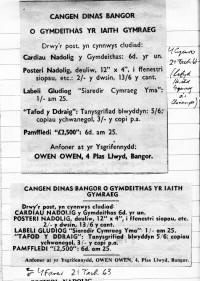 CANGEN DINAS BANGOR
O GYMDEITHAS YR IAITH GYMRAEG
Drwy'r post, yn cynnwys cludiad:
Cardiau Nadolig y Gymdeithas: 6d. yr un.
Posteri Nadolig, deuliw, 12" x 4", i ffenestri
siopau, etc.: 2/- y dwsin, 13/6 y cant.
Labeli Gludiog "Siaredir Cymraeg Yma":
1/- am 25.
"Tafod y Ddraig": Tanysgrifiad blwyddyn: 5/6;
copiau ychwanegol, 3/- y copi
Pamffledi "£2,500": 6d. am 25.
Anfoner at yr Ysgrifennydd:
OWEN OWEN, 4 Plas Llwyd, Bangor.
Y Cymro
21 Tach 63
CANGEN DINAS BANGOR O GYMDEITHAS YR IAITH
GYMRAEG
Drwy'r post, yn cynnwys cludiad:
CARDIAU NADOLIG y Gymdeithas 6d. yr un.
POSTERI NADOLIG, deuliw, 12" x 4", i ffenestri siopau, etc.
2/- y dwsin, 13/6 y cant.
LABELI GLUDIOG "Siaredir Cymraeg Yma": 1/- am 25.
"TAFOD Y DDRAIG": Tanysgrifiad blwyddyn 5/6; copiau
ychwanegol, 3/- y copi
PAMFFLEDI "£2,500": 6d. am 25.
Anfoner at yr Ysgrifennydd, OWEN OWEN, 4, Plas Llwyd, Bangor.
21 Tach 63
POSTERI NADOLIG